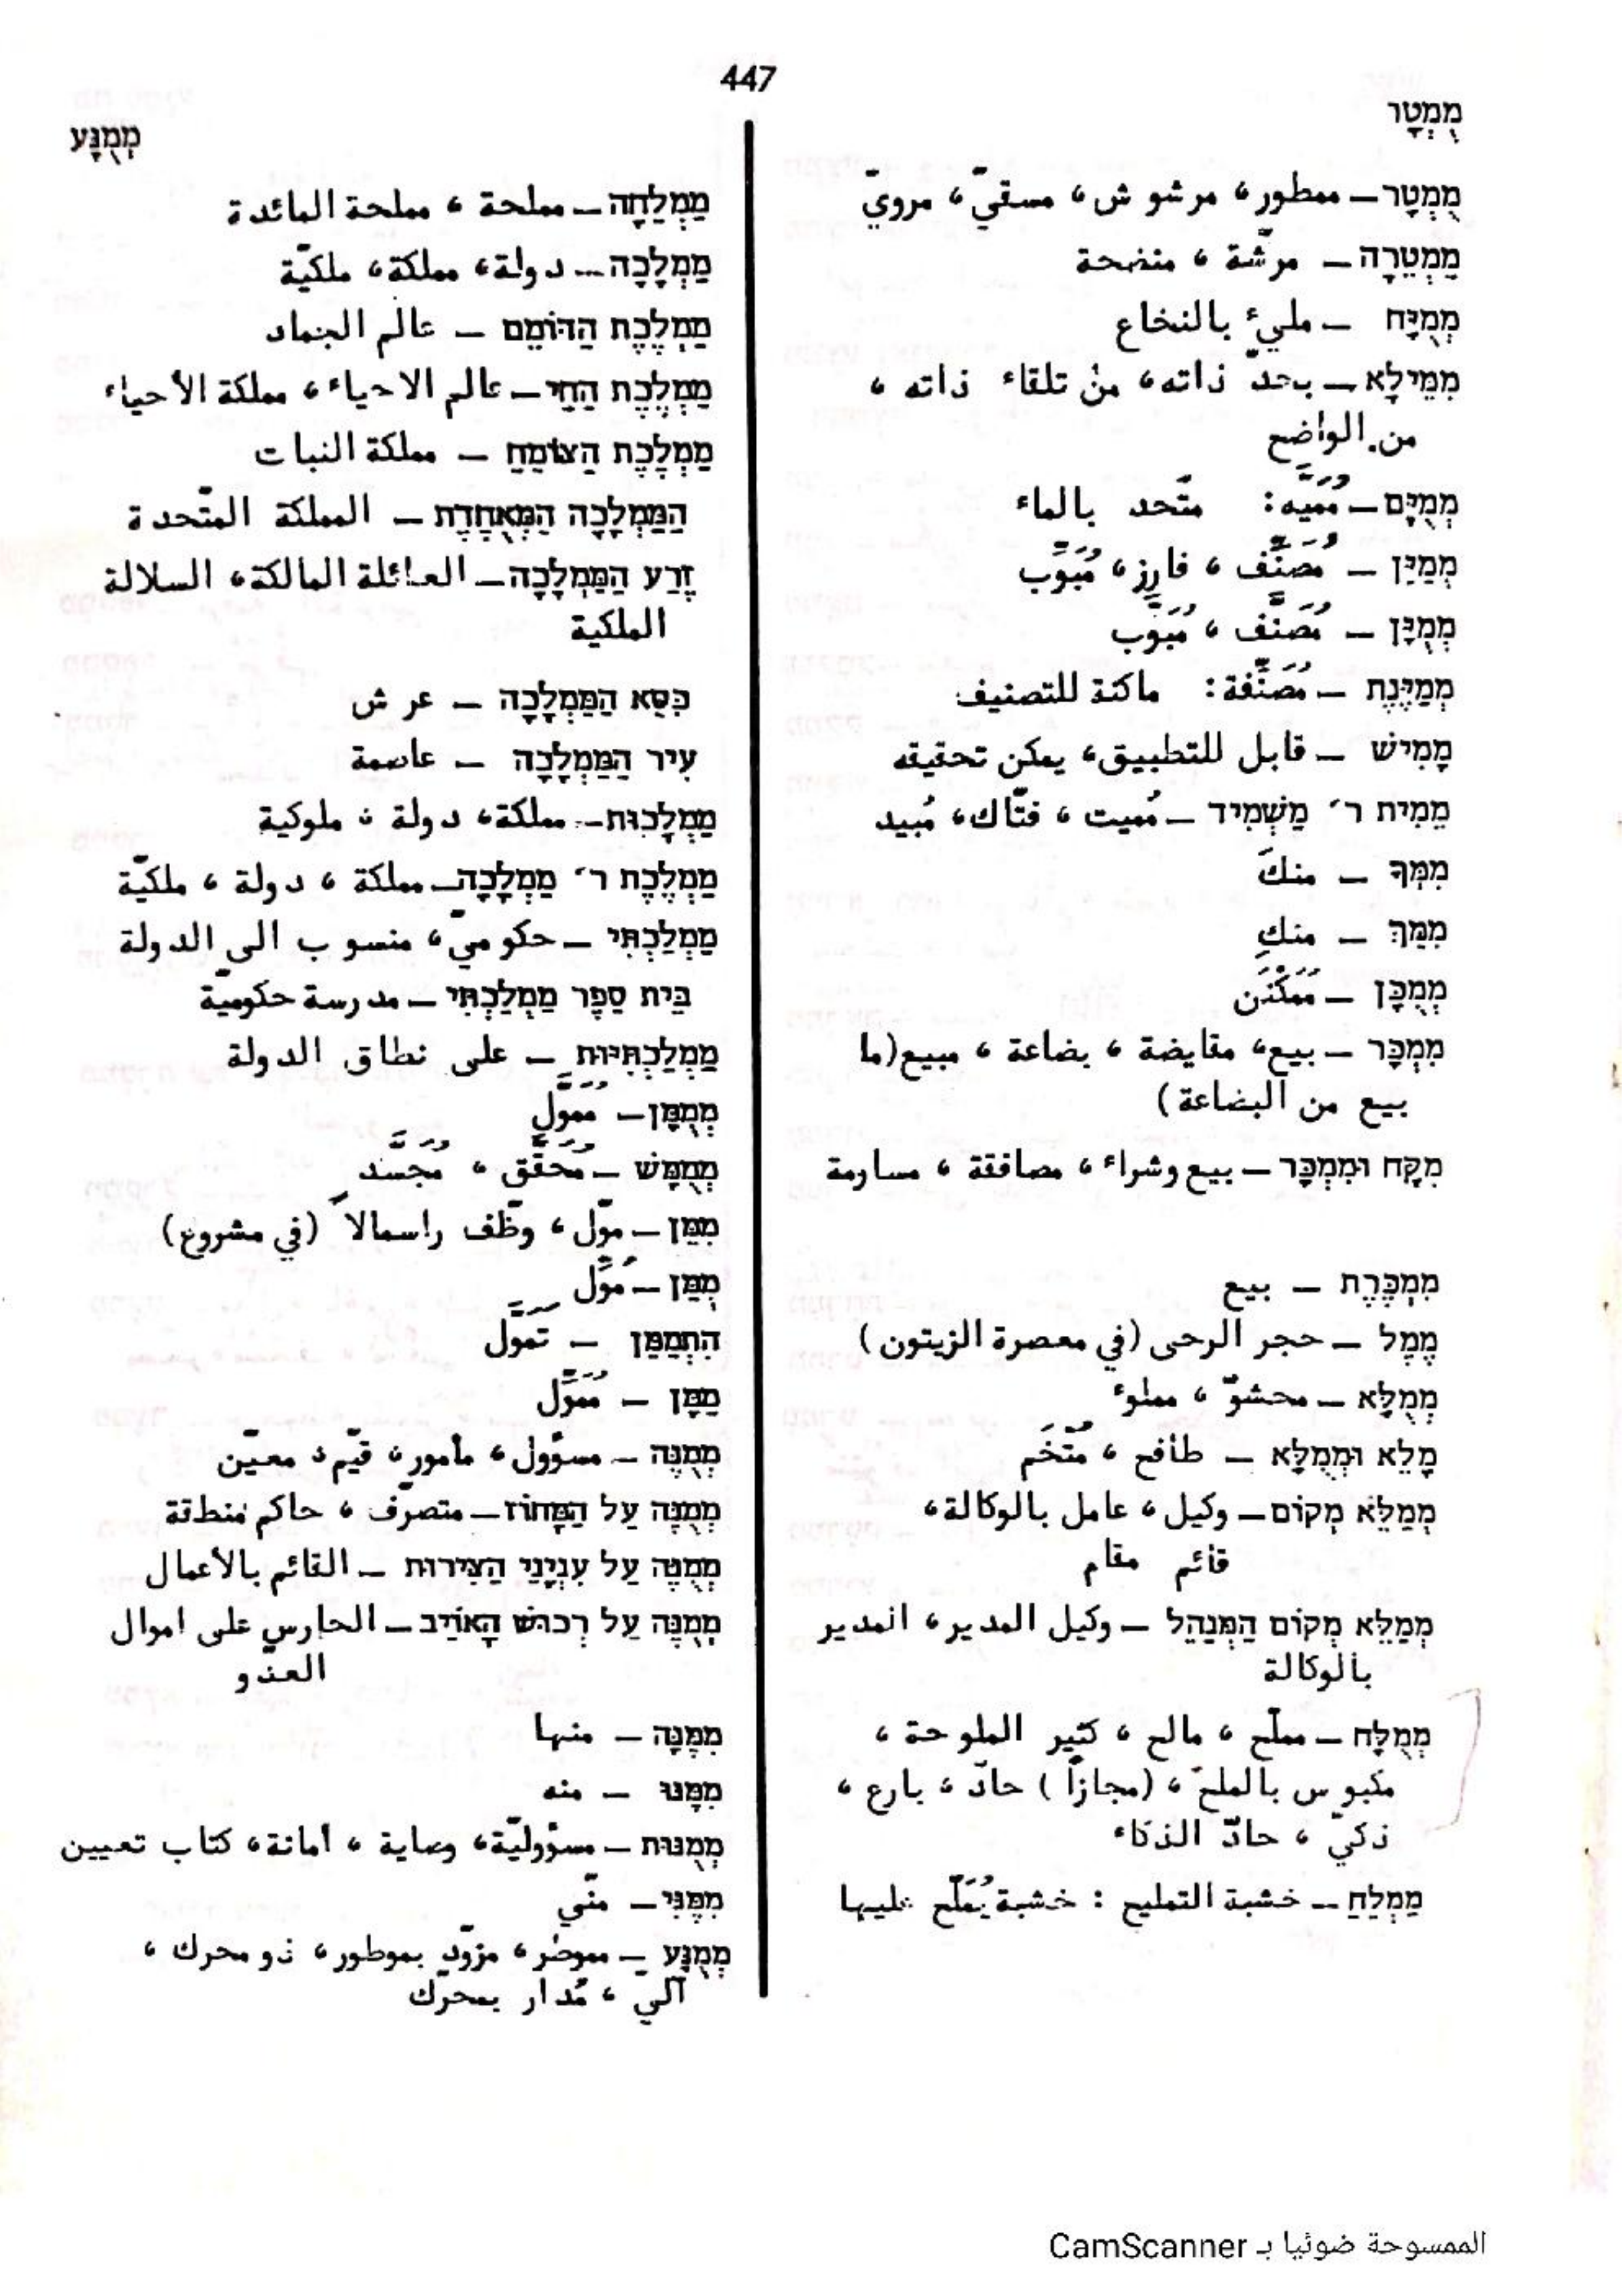 447
מֻמְטָר
מְמֻנָּע
מֻמְטָר – ممطور، مرشوش، مسقيّ، مرويّ
מַמְטֵרָה – مرشّة، منضحة
מְמֻיָּח – مليء بالنخاع
מִמֵּילָא – بحدّ ذاته، من تلقاء ذاته،
من الواضح
מְמֻיָּם – مُمَيَّه: متّحد بالماء
מְמַיֵּן – مُصَنِّف، فارِز، مُبَوِّب
מְמֻיָּן – مُصَنَّف، مُبَوَّب
מְמַיֶּנֶת – مُصَنِّفة: ماكنة للتصنيف
מָמִישׁ – قابل للتطبيق، يمكن تحقيقه
מֵמִית ר׳ מַשְׁמִיד – مُميت، فتّاك، مُبيد
מִמְּךָ – منكَ
מִמֵּךְ – منكِ
מְמֻכָּן – مُمَكْنَن
מִמְכָּר – بيع، مقايضة، بضاعة، مبيع (ما
بيع من البضاعة)
מִקָּח וּמִמְכָּר – بيع وشراء، مصافقة، مساومة
מִמְכֶּרֶת – بيع
מֶמֶל – حجر الرحى (في معصرة الزيتون)
מְמֻלָּא – محشوّ، مملوء
מָלֵא וּמְמֻלָּא – طافح، مُتْخَم
מְמַלֵּא מְקוֹם – وكيل، عامل بالوكالة،
قائم مقام
מְמַלֵּא מְקוֹם הַמְּנַהֵל – وكيل المدير، المدير
بالوكالة
מְמֻלָּח – مملّح، مالح، كثير الملوحة،
مكبوس بالملح، (مجازاً) حادّ، بارع،
ذكيّ، حادّ الذكاء
מַמְלֵחַ – خشبة التمليح: خشبة يُمَلَّح عليها
מַמְלֵחָה – مملحة، مملحة المائدة
מַמְלָכָה – دولة، مملكة، ملكيّة
מַמְלֶכֶת הַדּוֹמֵם – عالم الجماد
מַמְלֶכֶת הַחַי – عالم الاحياء، مملكة الأحياء
מַמְלֶכֶת הַצּוֹמֵחַ – مملكة النبات
הַמַּמְלָכָה הַמְּאֻחֶדֶת – المملكة المتّحدة
זֶרַע הַמַּמְלָכָה – العائلة المالكة، السلالة
الملكية
כִּסֵּא הַמַּמְלָכָה – عرش
עִיר הַמַּמְלָכָה – عاصمة
מַמְלָכוּת – مملكة، دولة، ملوكية
מַמְלֶכֶת ר׳ מַמְלָכָה – مملكة، دولة، ملكيّة
מַמְלַכְתִּי – حكوميّ، منسوب الى الدولة
בֵּית סֵפֶר מַמְלַכְתִּי – مدرسة حكوميّة
מַמְלַכְתִּיּוּת – على نطاق الدولة
מְמֻמָּן – مُمَوَّل
מְמֻמָּשׁ – مُحَقَّق، مُجَسَّد
מִמֵּן – موّل، وظّف راسمالاً (في مشروع)
מֻמַּן – مُوِّل
הִתְמַמֵּן – تَمَوَّل
מַמָּן – مُمَوِّل
מְמֻנֶּה – مسؤول، مأمور، قيّم، معيّن
מְמֻנֶּה עַל הַמָּחוֹז – متصرّف، حاكم منطقة
מְמֻנֶּה עַל עִנְיְנֵי הַצִּירוּת – القائم بالأعمال
מְמֻנֶּה עַל רְכוּשׁ הָאוֹיֵב – الحارس على اموال
العدو
מִמֶּנָּה – منها
מִמֶּנּוּ – منه
מְמֻנּוּת – مسؤوليّة، وصاية، أمانة، كتاب تعيين
מִמֶּנִּי – منّي
מְמֻנָּע – مموطر، مزوّد بموطور، ذو محرك،
آليّ، مُدار بمحرّك
الممسوحة ضوئيا بـ CamScanner